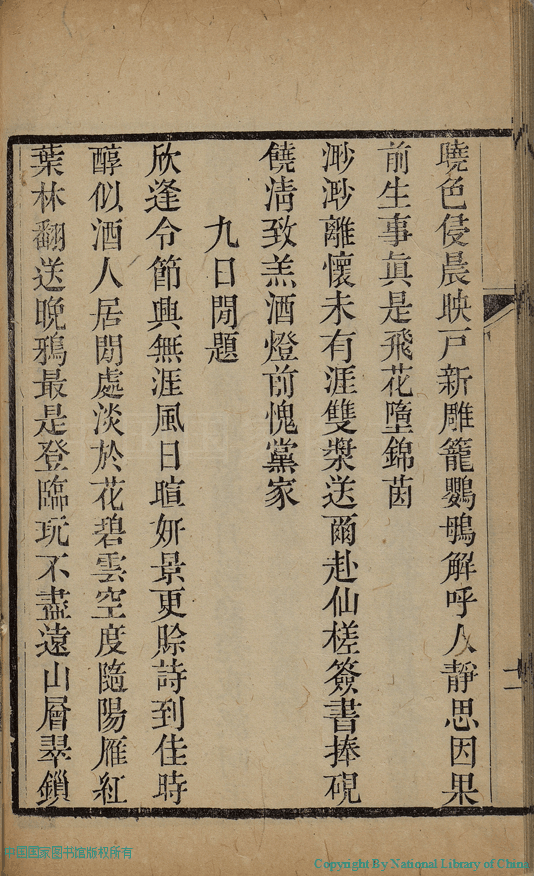 曉色侵晨映戸新雕籠鸚鵡解呼人靜思因果
前生事眞是飛花墮錦茵
渺渺離懷未有涯雙槳送爾赴仙槎簽書捧硯
饒淸致羔酒燈前愧黨家
九日閒題
欣逢令節興無涯風日暄妍景更賒詩到佳時
醇似酒人居閒處淡於花碧雲空度隨陽雁紅
葉林翻送晚鴉最是登臨玩不盡遠山層翠鎖
十一
中国国家图书馆版权所有
Copyright By National Library of China